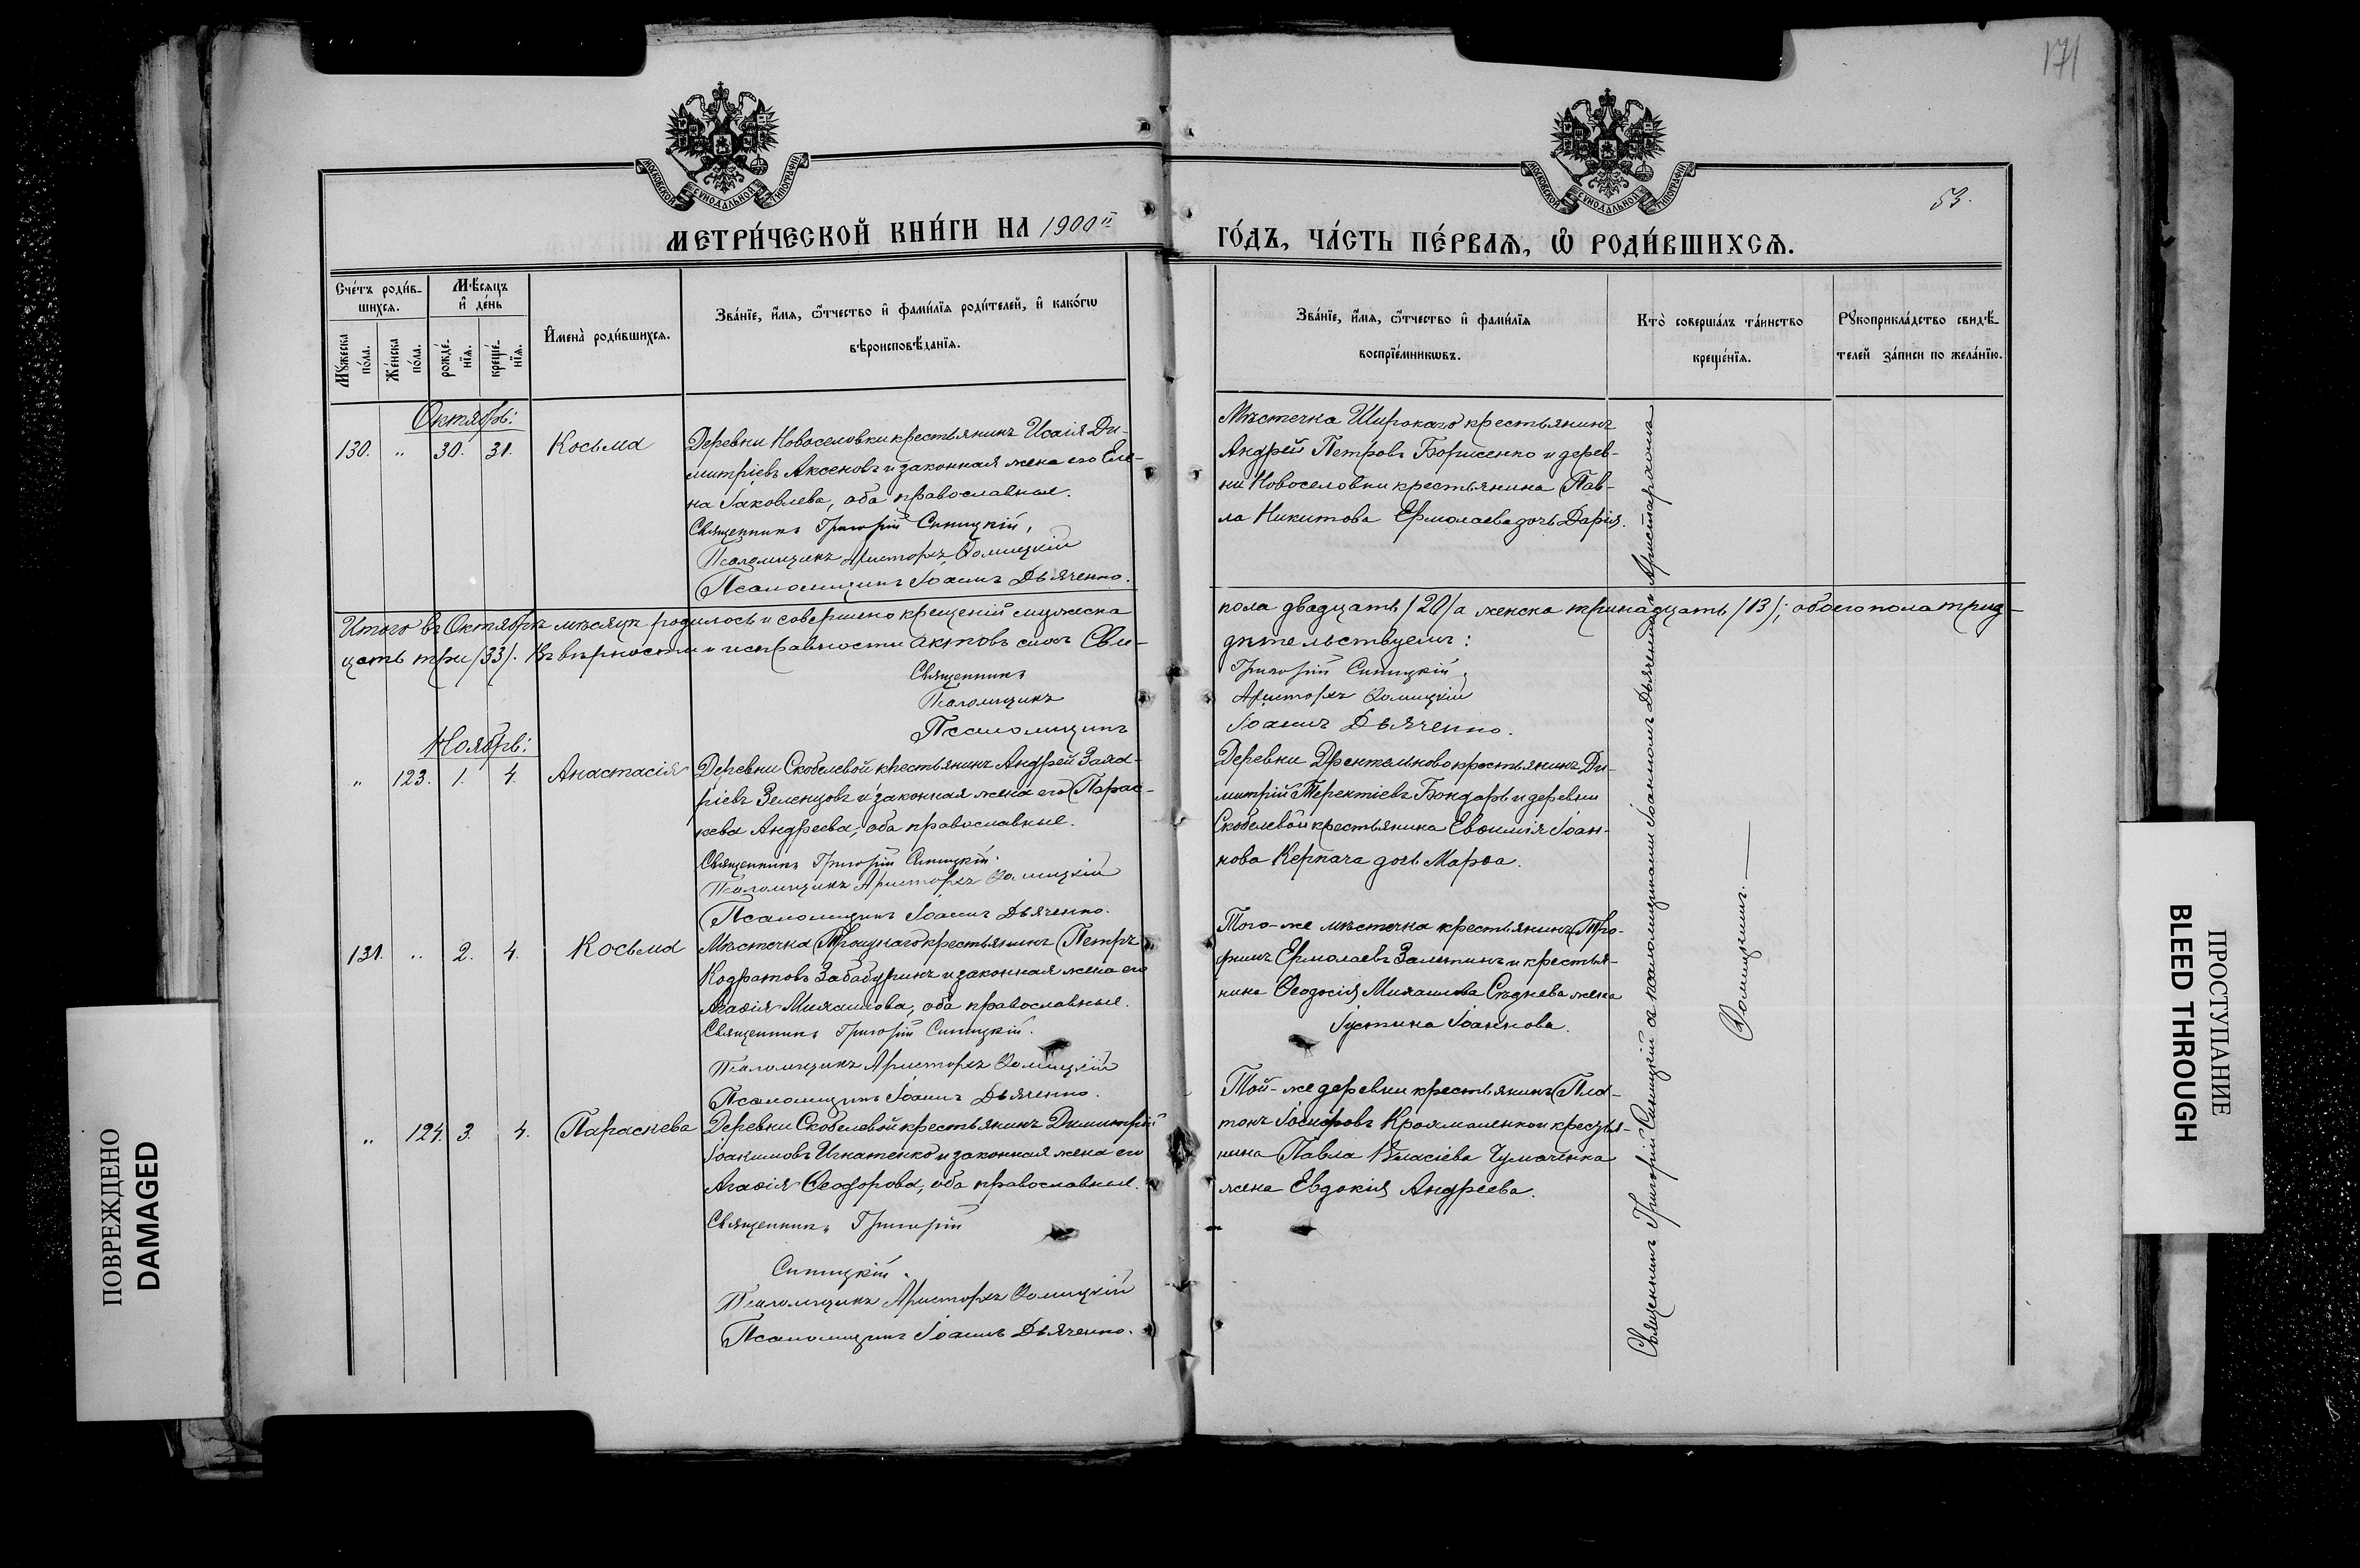 171
53.
МОСКОВСКОЙ СѴНОДАЛЬНОЙ ТИПОГРАФІИ
МОСКОВСКОЙ СѴНОДАЛЬНОЙ ТИПОГРАФІИ
МЕТРИ́ЧЕСКОЙ КНИ́ГИ НА 1900й ГО́ДЪ, ЧА́СТЬ ПЕ́РВАѦ, Ѡ҆ РОДИ́ВШИХСѦ.
Сче́тъ роди́в-
шихсѧ.
Мѣ́сѧцъ
и҆ де́нь
Мꙋ́жеска
по́ла.
Же́нска
по́ла.
рожде́-
нїѧ.
креще́-
нїѧ.
И҆мена̀ роди́вшихсѧ.
Зва́нїе, и҆́мѧ, ѻ҆́тчество и҆ фами́лїѧ роди́телей, и҆ како́гѡ
вѣроисповѣ́данїѧ.
Зва́нїе, и҆́мѧ, ѻ҆́тчество и҆ фами́лїѧ
воспрїе́мникѡвъ.
Кто̀ соверша́лъ та́инство
креще́нїѧ.
Рꙋкоприкла́дство свидѣ́-
телей за́писи по жела́нїю.
Октябрь:
130. " 30. 31. Косьма
Деревни Новоселовки крестьянинъ Исаія Ди-
митріевъ Аксеновъ и законная жена его Еле-
на Іаковлева, оба православные.
Священникъ Григорій Синицкій,
Псаломщикъ Аристархъ Ѳомицкій
Псаломщикъ Іоаннъ Дьяченко.
Мѣстечка Широкаго крестьянинъ
Андрей Петровъ Борисенко и дерев-
ни Новоселовки крестьянина Пав-
ла Никитова Ермолаева дочь Дарія.
Итого въ Октябрѣ мѣсяцѣ родилось и совершено крещеній мужеска пола двадцать /20/ а женска тринадцать /13/; обоего пола трид-
цать три /33/. Въ вѣрности и исправности актовъ сихъ Сви-дѣтельствуемъ:
Священникъ Григорій Синицкій,
Псаломщикъ Аристархъ Ѳомицкій
Псаломщикъ Іоаннъ Дьяченко.
Ноябрь:
" 123. 1. 4. Анастасія
Деревни Скобелевой крестьянинъ Андрей Заха-
ріевъ Зеленцовъ и законная жена его Парас-
кева Андреева, оба православные.
Священникъ Григорій Синицкій.
Псаломщикъ Аристархъ Ѳомицкій
Псаломщикъ Іоаннъ Дьяченко.
Деревни крестьянинъ Ди-
митрій Терентіевъ Бондарь и деревни
Скобелевой крестьянина Евѳимія Іоан-
нова Керпача дочь Марѳа.
131. " 2. 4. Косьма
Мѣстечка крестьянинъ Петръ
Кодратовъ Забабуринъ и законная жена его
Агаѳія Михаилова, оба православные.
Священникъ Григорій Синицкій.
Псаломщикъ Аристархъ Ѳомицкій
Псаломщикъ Іоаннъ Дьяченко.
Того-же мѣстечка крестьянинъ Тро-
фимъ Ермолаевъ и крестья-
нина Ѳеодосія Михаилова жена
Іустина Іоаннова.
" 124. 3. 4. Параскева
Деревни Скобелевой крестьянинъ Димитрій
Іоакимовъ Игнатенко и законная жена его
Агаѳія Ѳеодорова, оба православные.
Священникъ Григорій
Синицкій.
Псаломщикъ Аристархъ Ѳомицкій
Псаломщикъ Іоаннъ Дьяченко.
Той-же деревни крестьянинъ Пла-
тонъ Іосифовъ и крестья-
нина Павла Власіева Чумаченка
жена Евдокія Андреева.
Священникъ Григорій Синицкій съ псаломщиками Іоанномъ Дьяченко и Аристархомъ
Ѳомицкимъ.
ПОВРЕЖДЕНО
DAMAGED
ПРОСТУПАНИЕ
BLEED THROUGH